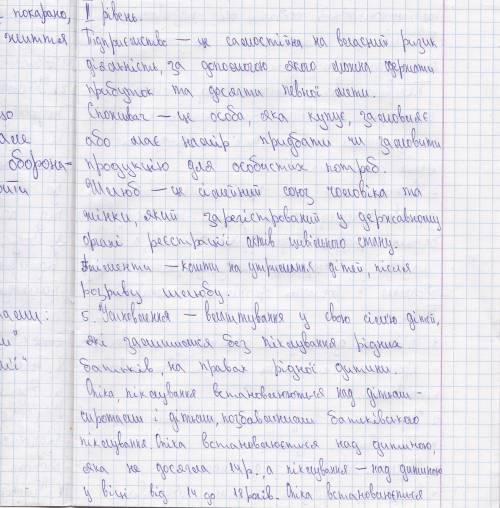 покарано,
життя
що
оборона-
II рівень.
Підприємство — це самостійна на власний ризик
діяльність, за допомогою якого можна одержати
прибуток та досягти певної мети.
Споживач — це особа, яка купує, замовляє
або має намір придбати чи замовити
продукцію для особистих потреб.
Шлюб — це сімейний союз чоловіка та
жінки, який зареєстрований у державному
органі реєстрації актів цивільного стану.
Аліменти — кошти на утримання дітей, після
розриву шлюбу.
5. Усиновлення — влаштування у свою сімю дітей,
які залишилися без піклування рідних
батьків, на правах рідної дитини.
Опіка, піклування встановлюються над дітьми-
сиротами і дітьми, позбавленими батьківського
піклування. Опіка встановлюється над дитиною,
яка не досягла 14 р., а піклування — над дитиною
у віці від 14 до 18 років. Опіка встановлюється